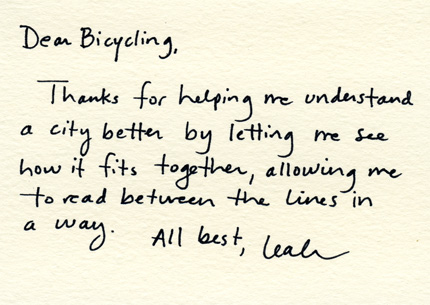 Dear Bicycling,
Thanks for helping me understand
a city better by letting me see
how it fits together, allowing me
to read between the lines in
a way.
All best, Leah